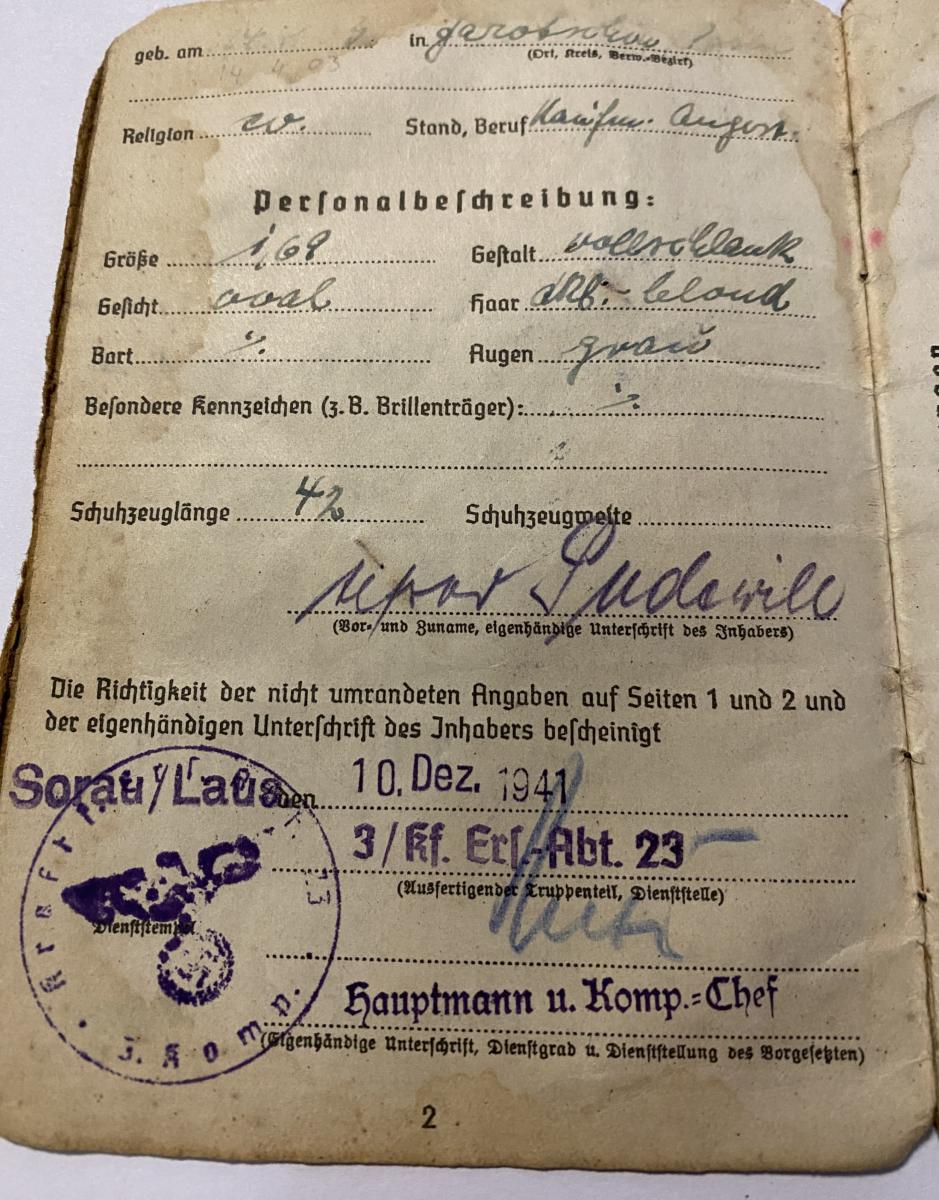 geb. am in Jarotschin
14 4.03
(Ort, Kreis, Berw.-Bezirk)
Religion ev. Stand, Beruf Kaufm. Angest.
Personalbeschreibung:
Größe 1,68 Gestalt vollschlank
Gesicht oval Haar dkl.-blond
Bart ./. Augen grau
Besondere Kennzeichen (z.B. Brillenträger): ./.
Schuhzeuglänge 42 Schuhzeugweite
Ludewill
(Vor- und Zuname, eigenhändige Unterschrift des Inhabers)
Die Richtigkeit der nicht umrandeten Angaben auf Seiten 1 und 2 und
der eigenhändigen Unterschrift des Inhabers bescheinigt
Sorau/Laus den 10. Dez. 1941
3/Kf. Ers.-Abt. 23
(Ausfertigender Truppenteil, Dienststelle)
Dienststempel
Hauptmann u. Komp.-Chef
(Eigenhändige Unterschrift, Dienstgrad u. Dienststellung des Vorgesetzten)
3. Komp.
2